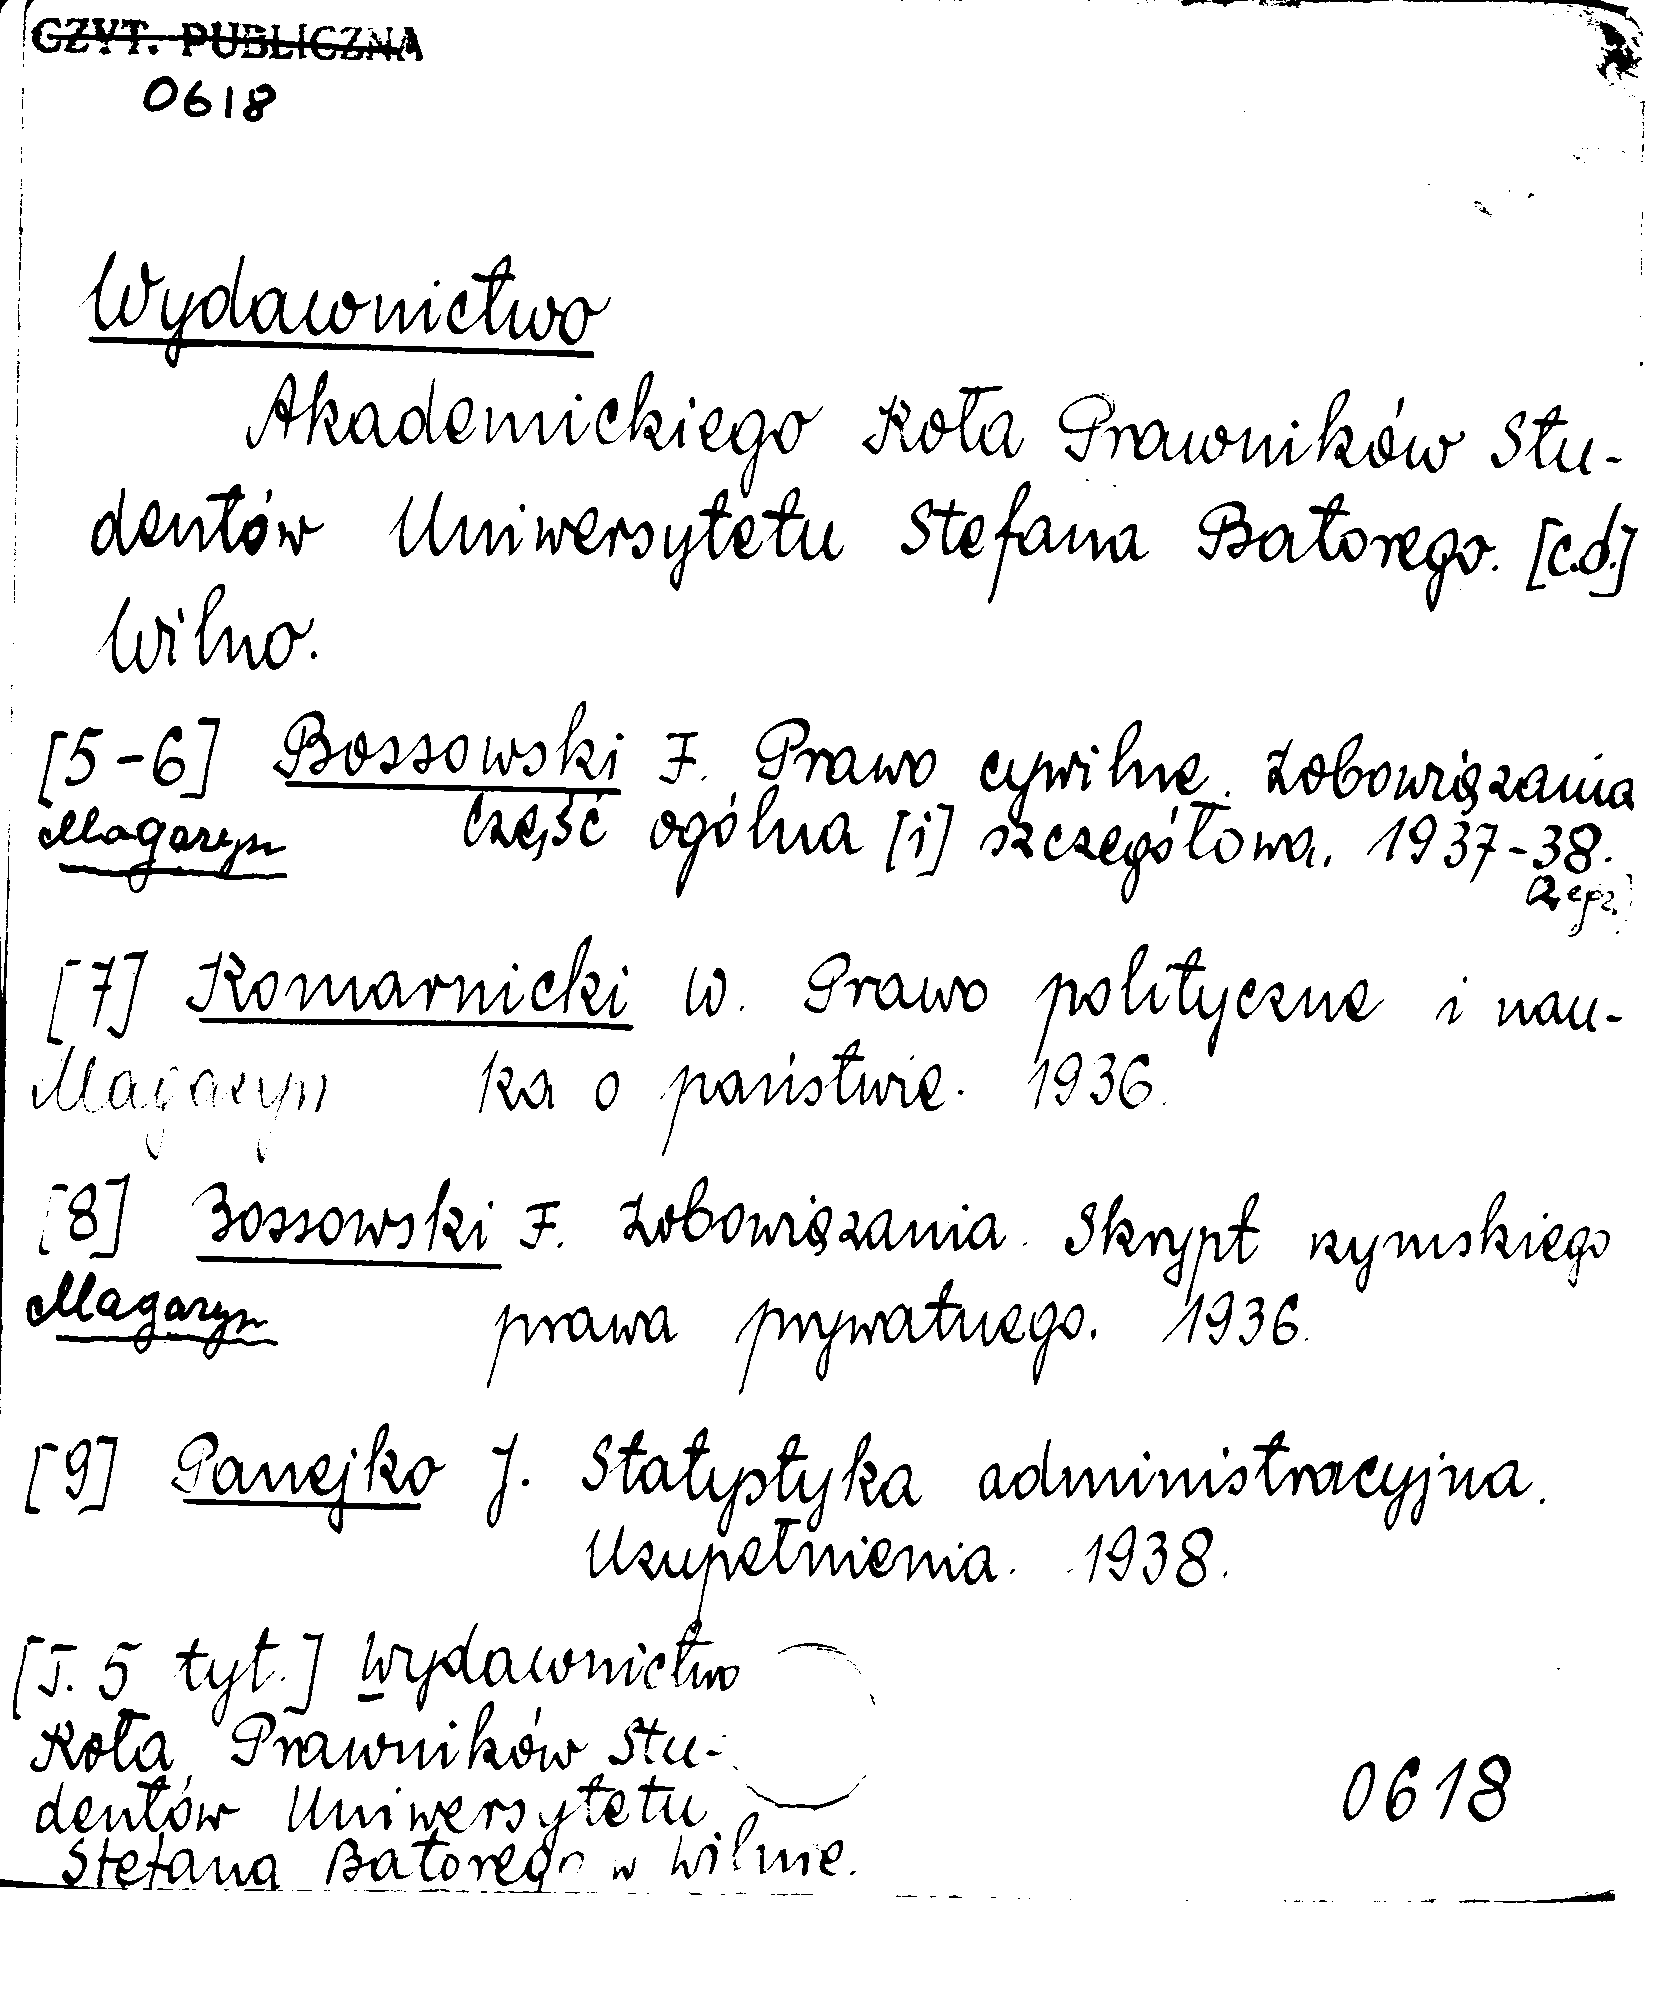 CZYT. PUBLICZNA
0618
Wydawnictwo
Akademickiego Koła Prawników Stu-
dentów Uniwersytetu Stefana Batorego. [c.d.]
Wilno.
[5-6] Bossowski F. Prawo cywilne. Zobowiązania
Magazyn część ogólna [i] szczegółowa. 1937-38.
2 egz.
[7] Komarnicki W. Prawo polityczne i nau-
Magazyn ka o państwie. 1936.
[8] Bossowski F. Zobowiązania. Skrypt rzymskiego
Magazyn prawa prywatnego. 1936.
[9] Panejko J. Statystyka administracyjna.
Uzupełnienia. 1938.
[T. 5 tyt.] Wydawnictwo
Koła Prawników Stu-
dentów Uniwersytetu 0618
Stefana Batorego w Wilnie.